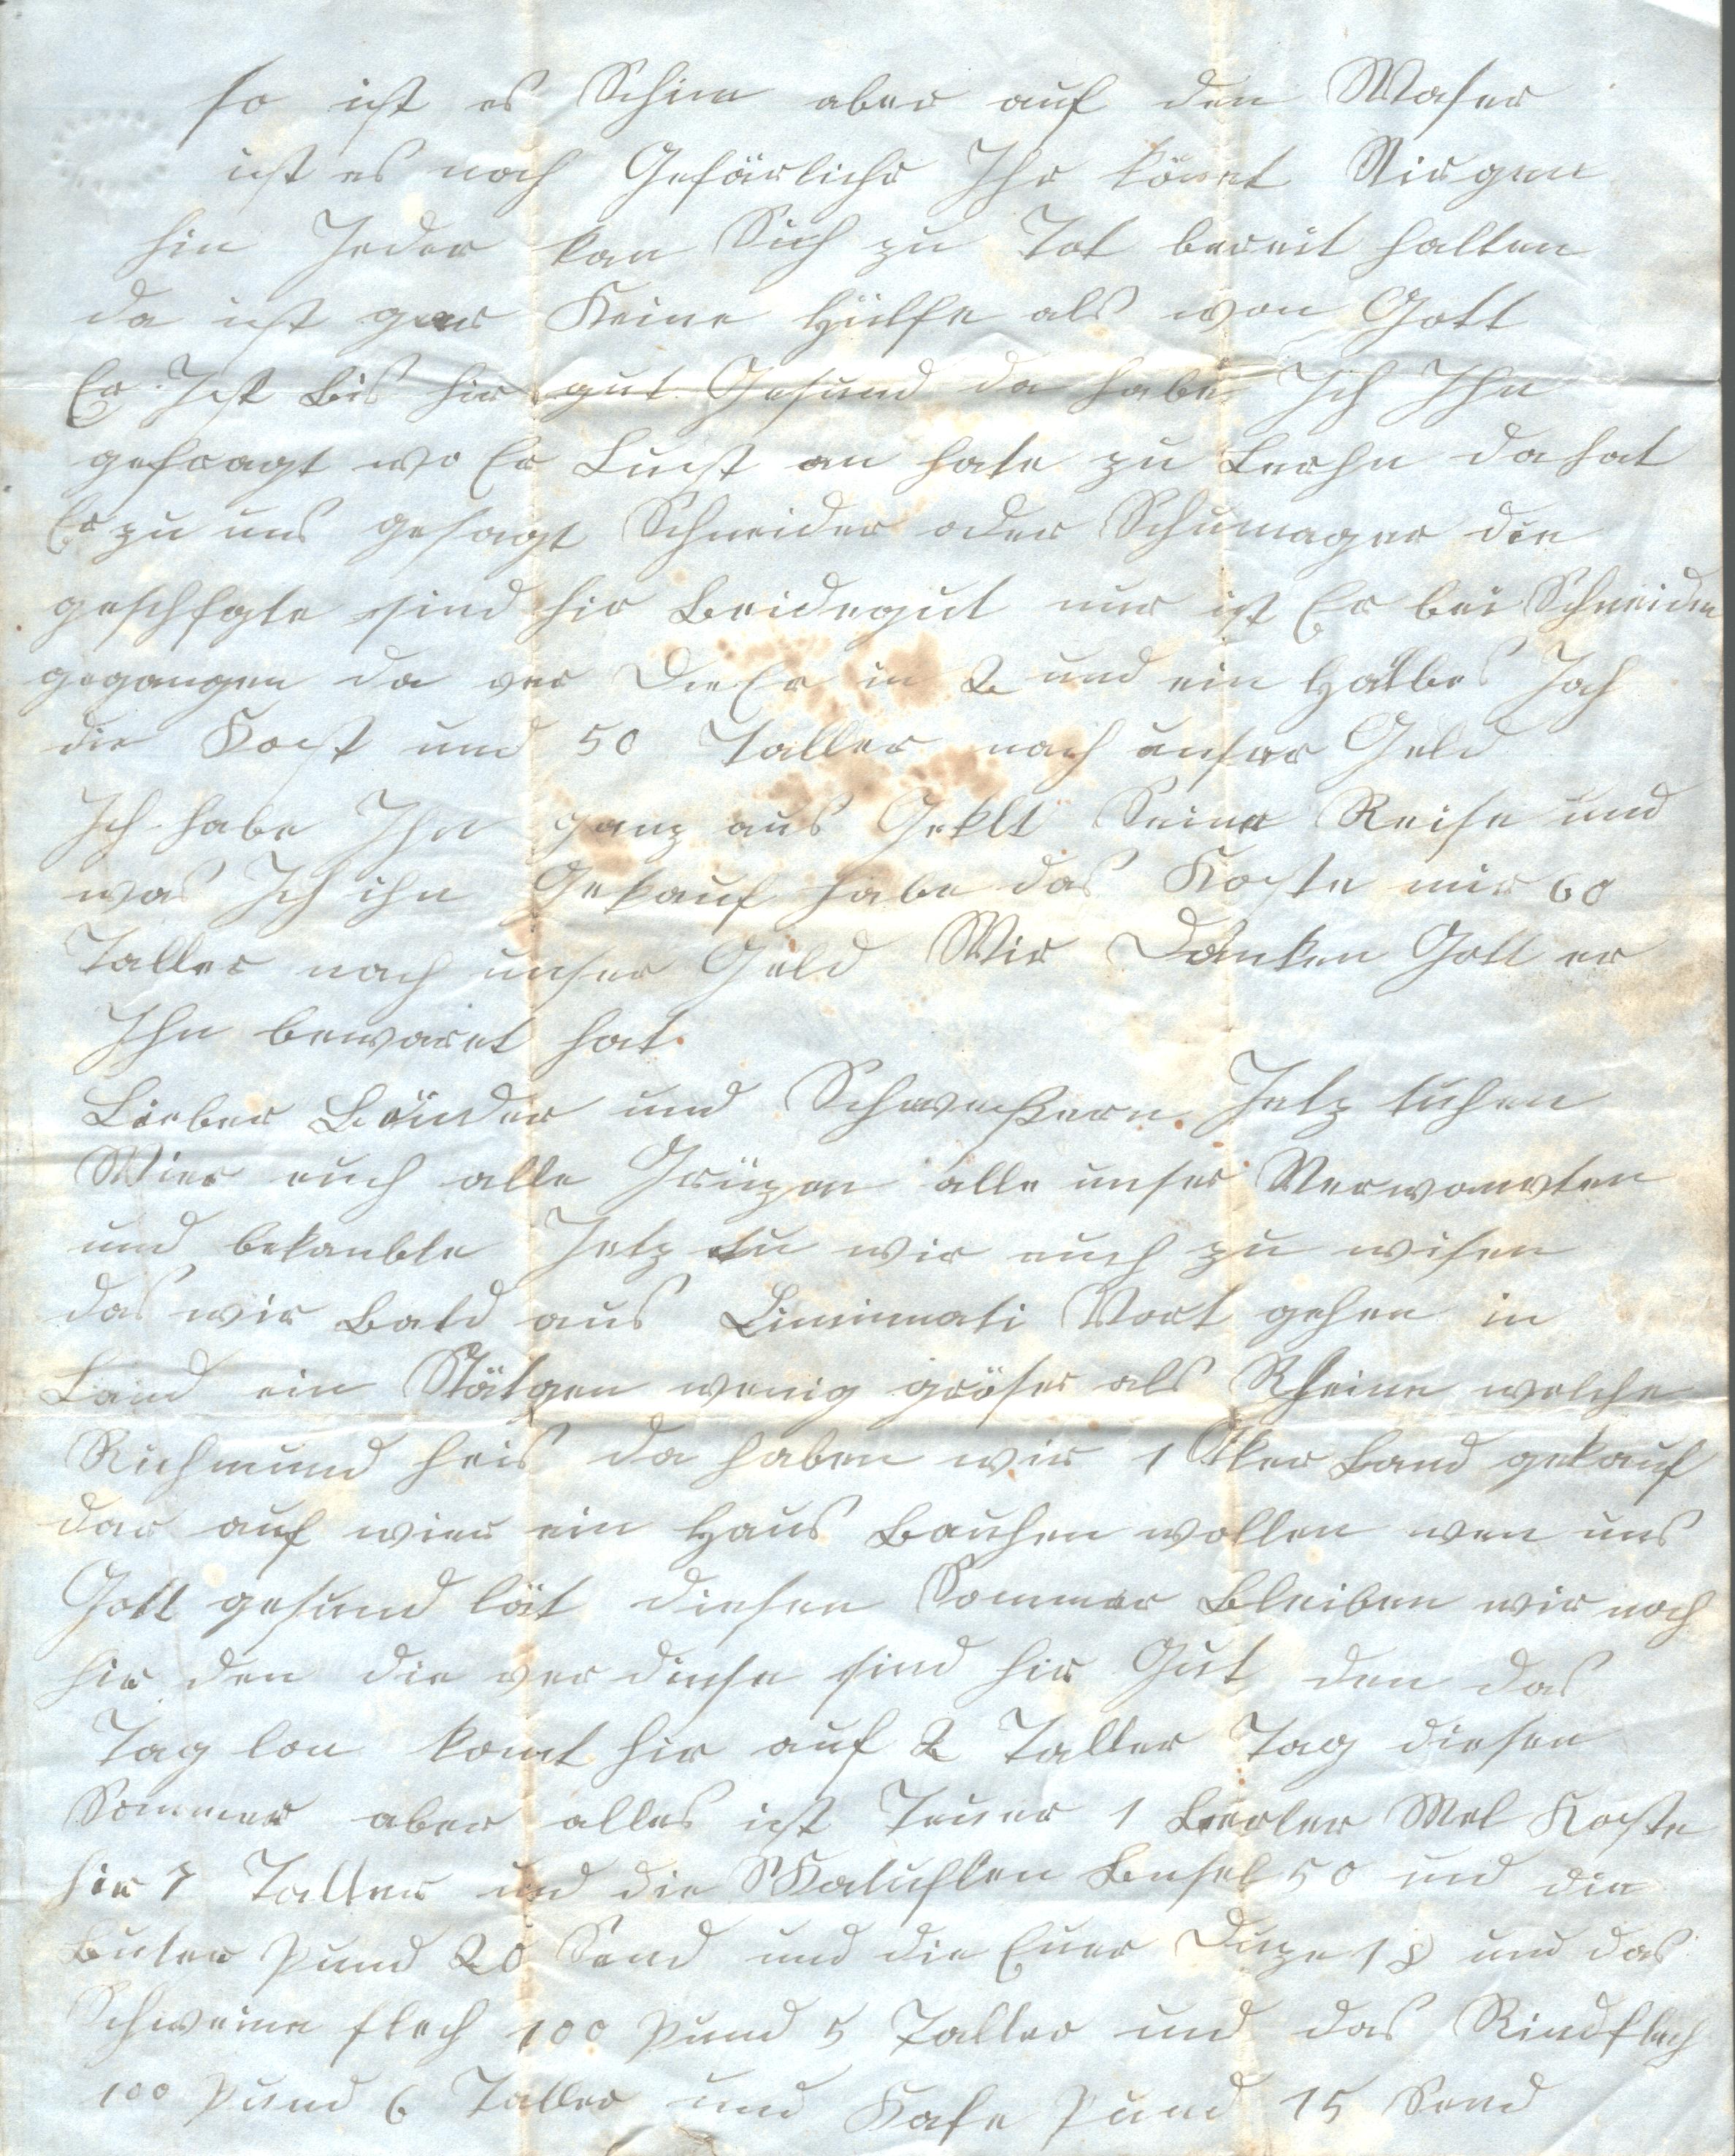 so ist es Schim aber auf den Waser
ist es noch Gefärlichr Ihr könet Nirgen
hin Jeder kan Sich zu Tot bereit halten
da ist gar Keine Hülfe als von Gott
Er Ist Bis hir gut Gesund da habe Ich Ihn
gefragt wo Er Lust an hate zu Lerhn da hat
Er zu uns gesagt Schneider oder Schumager die
geschfgte sind hir Beide gut nur ist Er bei Schneider
gegangen da ver Die Er in 2 und ein Halbes Jach
die Kost und 50 Taller nach unser Geld
Ich habe Ihn ganz aus Geklt Seine Reise und
was Ich ihn Gekauf habe das Koste mir 60
Taller nach unser Geld Wir Danken Gott er
Ihn bewaret hat.
Lieber Brüder und Schweßern. Jetz tuhen
Wier euch alle Grüzen alle unser Verwanten
und bekante Jetz tu wir euch zu wisen
das wir Bald aus Cininnati Vort gehen in
Land ein Stätgen wenig gröser als Rheine welche
Richmund heis da haben wir 1 Aker Land gekauf
dar auf wier ein Haus Bauhen wollen wen uns
Gott gesund lät diesen Sommer Bleiben wir noch
hir den die ver dinse sind hir Gut den das
Tag lon komt hir auf 2 Taller Tag diesen
Sommer aber alles ist Teuer 1 Berler Mel Koste
hir 7 Taller und die Katuflen Busel 50 und die
Buter Pund 20 Send und die Euer Duze 18 und das
Schweine flech 100 Pund 5 Taller und das Rindflech
100 Pund 6 Taller und Kafe Pund 15 Send